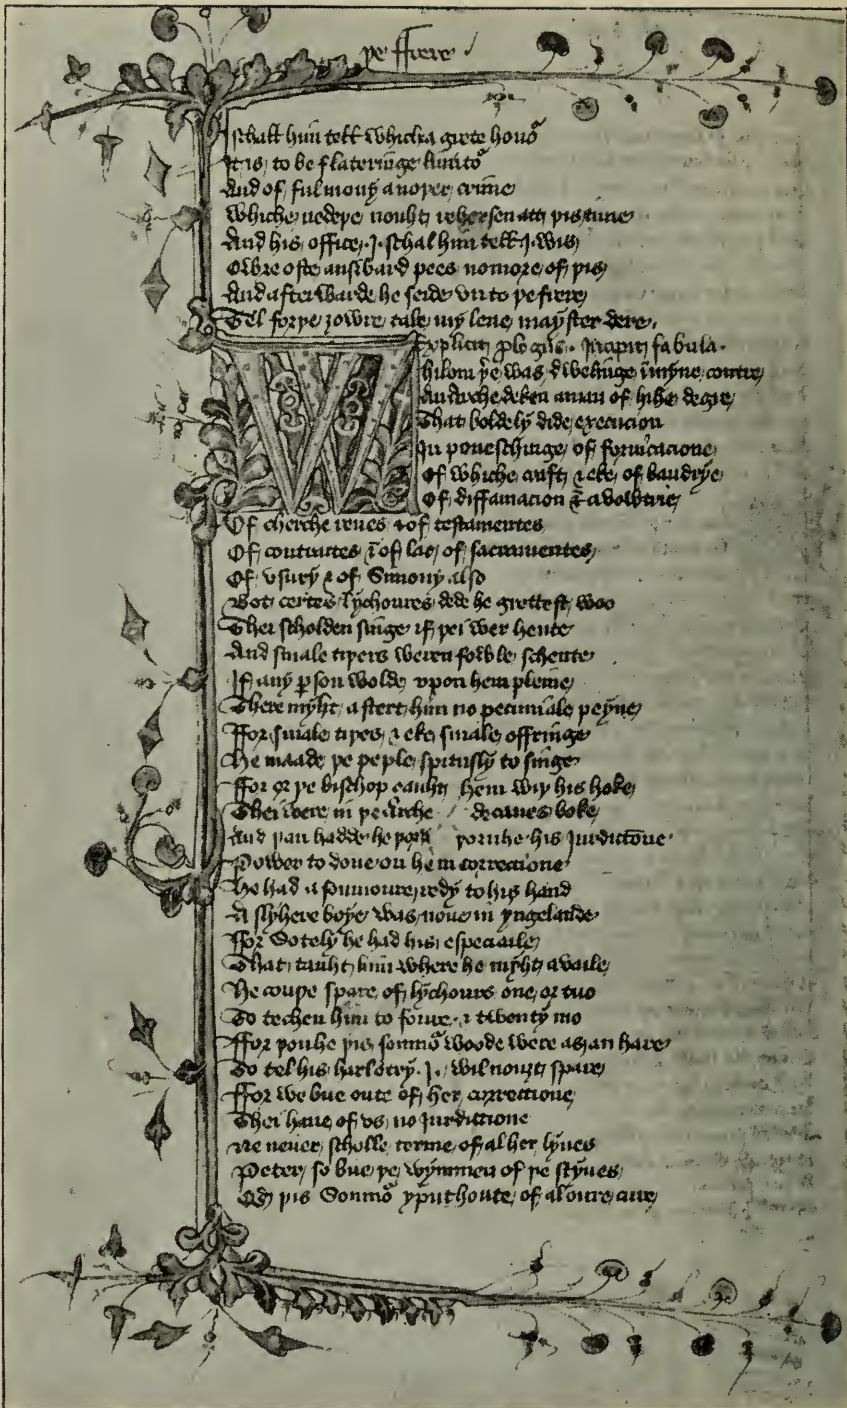 þe ffrere
I schall him tell which a grete honoʳ
It is to be flateringe limitoʳ
And of ful mony anoþer crime
Whiche nedeþe nouht rehersen att þis time
And his office I schal him tell I wis
Owre oste answard pees nomore of þis
And afterwarde he seide vnto þe frere
Tel forþe ȝowre tale my leue mayster dere
Explicit plogus Incipit fabula
Whilom þʳe was dwellinge in myne contre
An Archedeken a man of hihe degre
That boldely dide execucion
In poneschinge of fornicacione
Of whiche craft & eke of baudrye
Of diffamacion & avowterie
Of cherche reues & of testamentes
Of contractes & of lac of sacramentes
Of vsury & of Simony also
Bot certes lychoures dede he grettest woo
Thei scholden singe if þei wer hente
And smale tiþers weren fowle schente
If any pson wolde vpon hem pleine
There myht astert him no pecuniale peyne
Ffor smale tiþes & eke smale offringe
He maade þe peple spitusly to singe
Ffor or þe bischop cauht hem wiþ his hoke
Thei were in þe Arche decanes boke
And þan hadde he þorh his Jurdictōne
Power to done on hem correccione
He had a somnoure redy to his hand
A slyhere boye was none in yngelande
Ffor Sotely he had his especiaile
That tauht him where he myht availe
He couþe spare of lychours one or tuo
To techen him to foure & twenty mo
Ffor þouhe þis somnoʳ woode were as an hare
To tel his harlotry I wil nouȝt spare
Ffor we bue oute of her correctione
Thei haue of vs no Jurdictione
Ne neuer scholle terme of al her lyues
Peter so bue þe wymmen of þe styues
Qd þis Somnoʳ yput houte of al oure cure